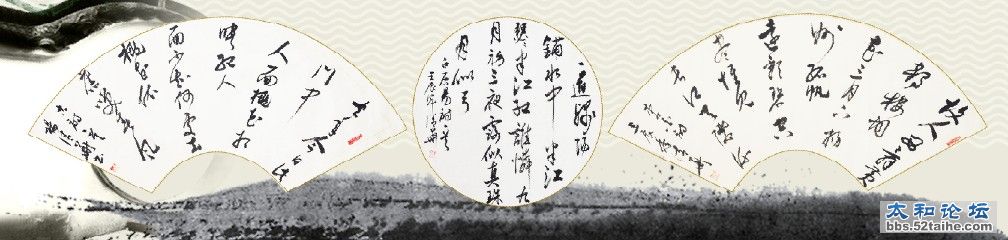 故人西辞黄
鹤楼烟
花三月下扬
州孤帆
远影碧空
尽惟见
长江天际流
一道残阳
铺水中 半江
瑟半江红谁憐九
月初三夜露似真珠
月似弓
白居易诗
去年今日此
门中
人面桃花相
映红人
面不知何处去
桃花依
旧笑春风
太和论坛
bbs.52taihe.com